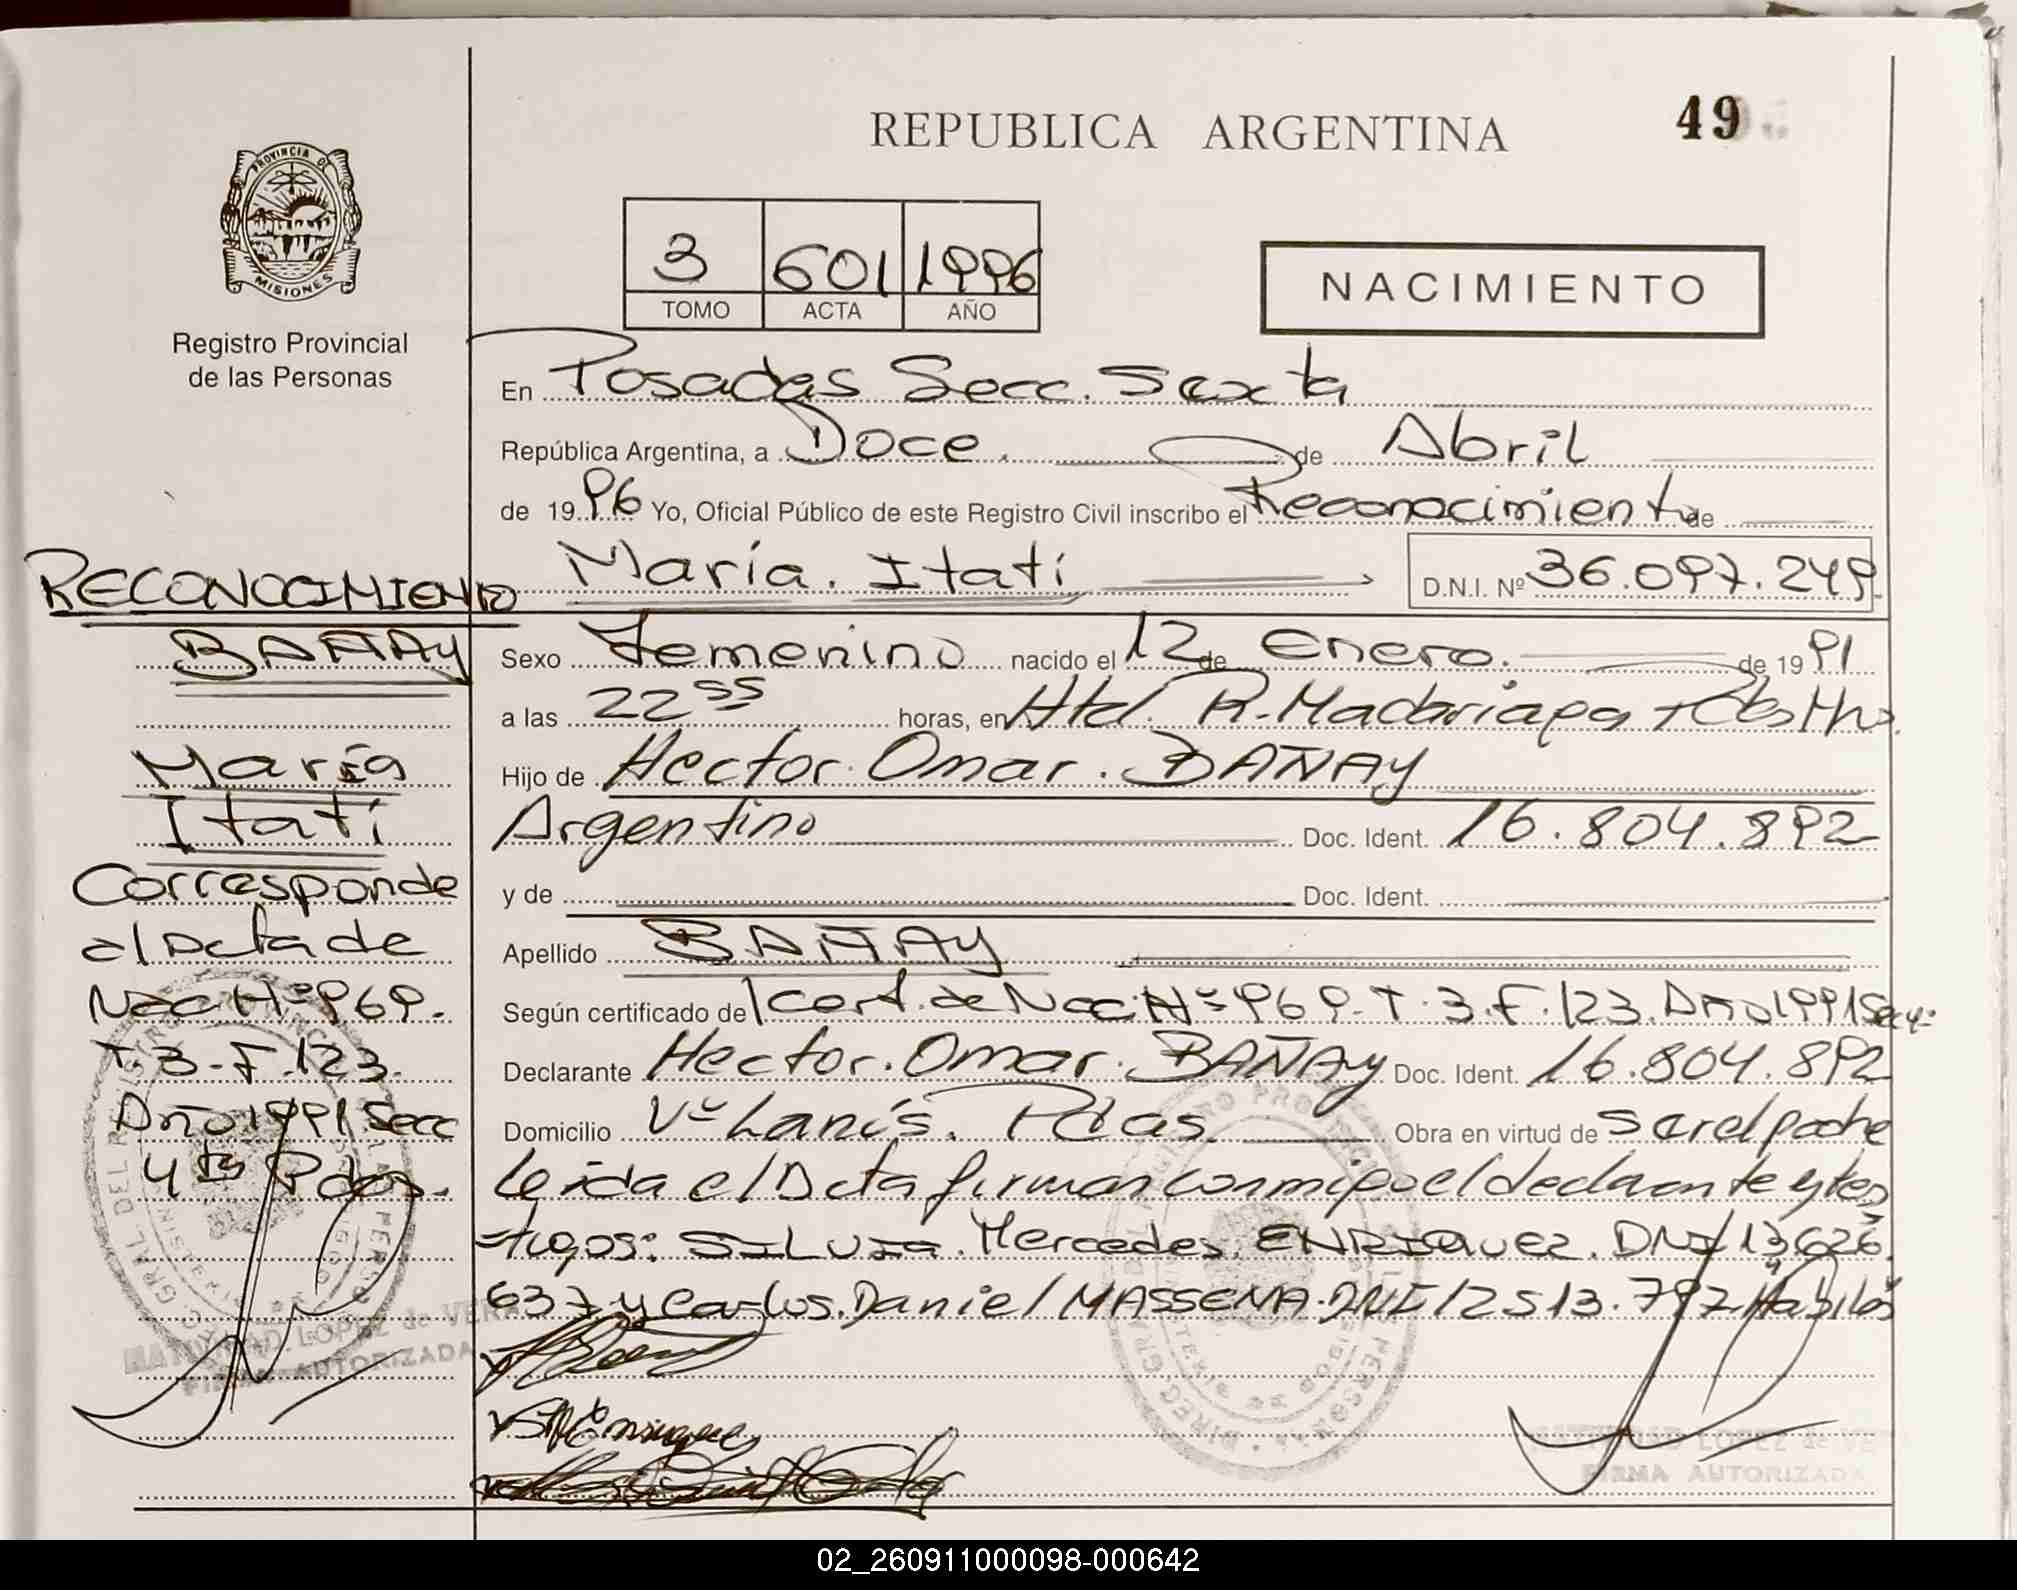 REPUBLICA ARGENTINA
49
PROVINCIA DE
MISIONES
Registro Provincial
de las Personas
3 601 1996
TOMO ACTA AÑO
NACIMIENTO
En Posadas Secc. Sexta
República Argentina, a Doce. de Abril
de 1996 Yo, Oficial Público de este Registro Civil inscribo el Reconocimiento de
María. Itatí D.N.I. Nº 36.097.249
Sexo Femenino nacido el 12 de Enero. de 1991
a las 22 55 horas, en R. Madariaga
Hijo de Hector Omar. BAÑAY
Argentino Doc. Ident. 16.804.892
y de Doc. Ident.
Apellido BAÑAY
Según certificado de 1 Cert. de Nac. Nº 969. T. 3. F. 123. Año 1991 Secc 4ª
Declarante Hector. Omar. BAÑAY Doc. Ident. 16.804.892
Domicilio Vº Lanús. Pdas. Obra en virtud de ser el padre
Leida el Acta firman conmigo el declarante y tes
=tigos: SILVIA. Mercedes ENRIQUEZ. DNI 13626.
637 y Carlos. Daniel MASSENA. DNI 12513.797 Hábiles
RECONOCIMIENTO
BAÑAY
María
Itatí
Corresponde
al Acta de
Nac Nº 969.
T. 3. F. 123.
Año 1991 Secc
4ta Pdas.
LOPEZ de VERA
FIRMA AUTORIZADA
LOPEZ de VERA
FIRMA AUTORIZADA
02_260911000098-000642